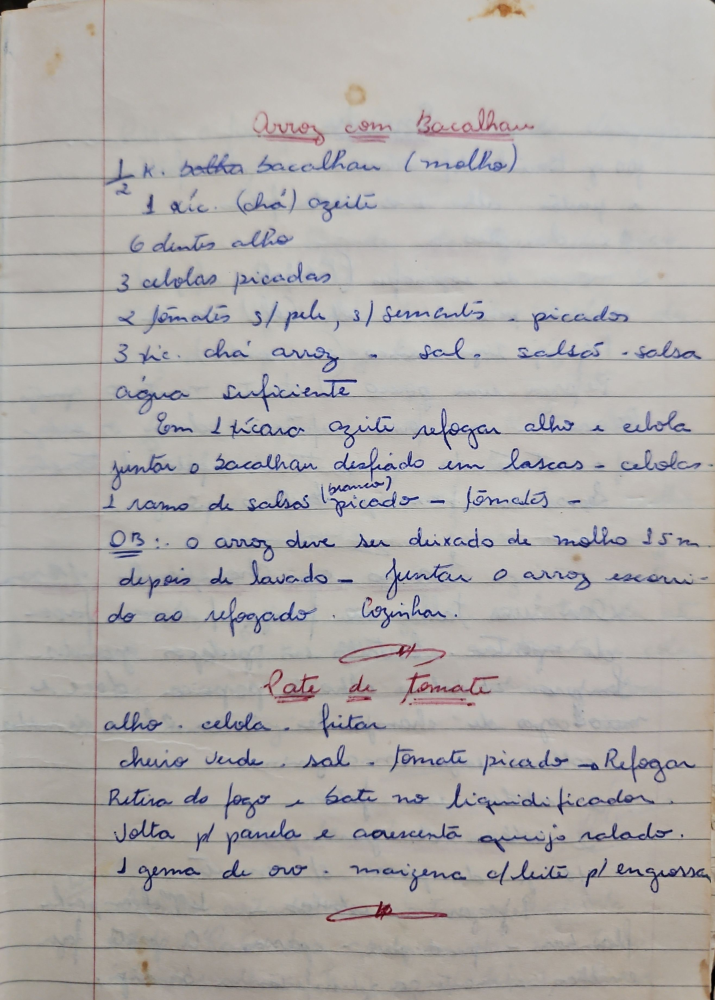 Arroz com Bacalhau
1/2 K. bacalhau (molho)
1 xíc. (chá) azeite
6 dentes alho
3 cebolas picadas
2 tomates s/ pele, s/ sementes - picados
3 xíc. chá arroz - sal - salsão - salsa
água suficiente
Em 1 xícara azeite refogar alho e cebola
juntar o bacalhau desfiado em lascas - cebolas -
(branco)
1 ramo de salsão picado - tomates -
OB:. o arroz deve ser deixado de molho 15 m
depois de lavado - Juntar o arroz escorri-
do ao refogado. Cozinhar.
Pate de tomate
alho - cebola - fritar
cheiro verde - sal - tomate picado → Refogar
Retira do fogo e bate no liquidificador.
Volta p/ panela e acrescenta queijo ralado.
1 gema de ovo - maizena c/ leite p/ engrossar